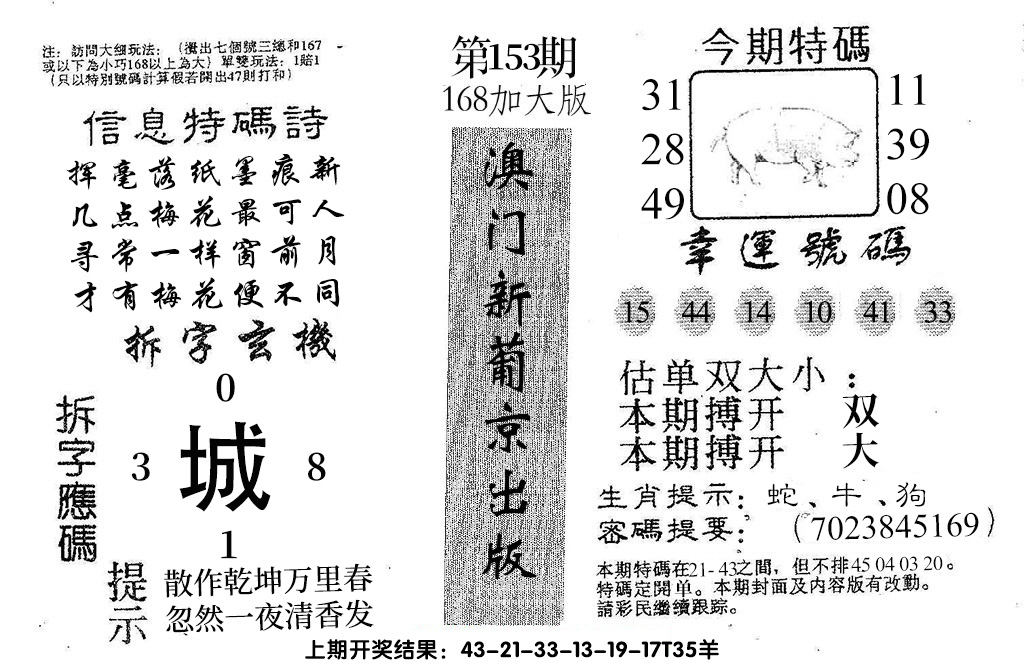 注：訪問大细玩法：（攪出七個號三總和167
或以下為小巧168以上為大）單雙玩法：1賠1
（只以特別號碼計算假若開出47則打和）
信息特碼詩
挥毫落纸墨痕新
几点梅花最可人
寻常一样窗前月
才有梅花便不同
拆字玄機
拆字應碼
0
3 城 8
1
提示
散作乾坤万里春
忽然一夜清香发
第153期
168加大版
澳门新葡京出版
今期特碼
31 11
28 39
49 08
幸運號碼
15 44 14 10 41 33
估单双大小：
本期搏开 双
本期搏开 大
生肖提示：蛇、牛、狗
密碼提要：（7023845169）
本期特碼在21-43之間，但不排45 04 03 20。
特碼定開单。本期封面及内容版有改動。
請彩民繼續跟踪。
上期开奖结果：43-21-33-13-19-17T35羊